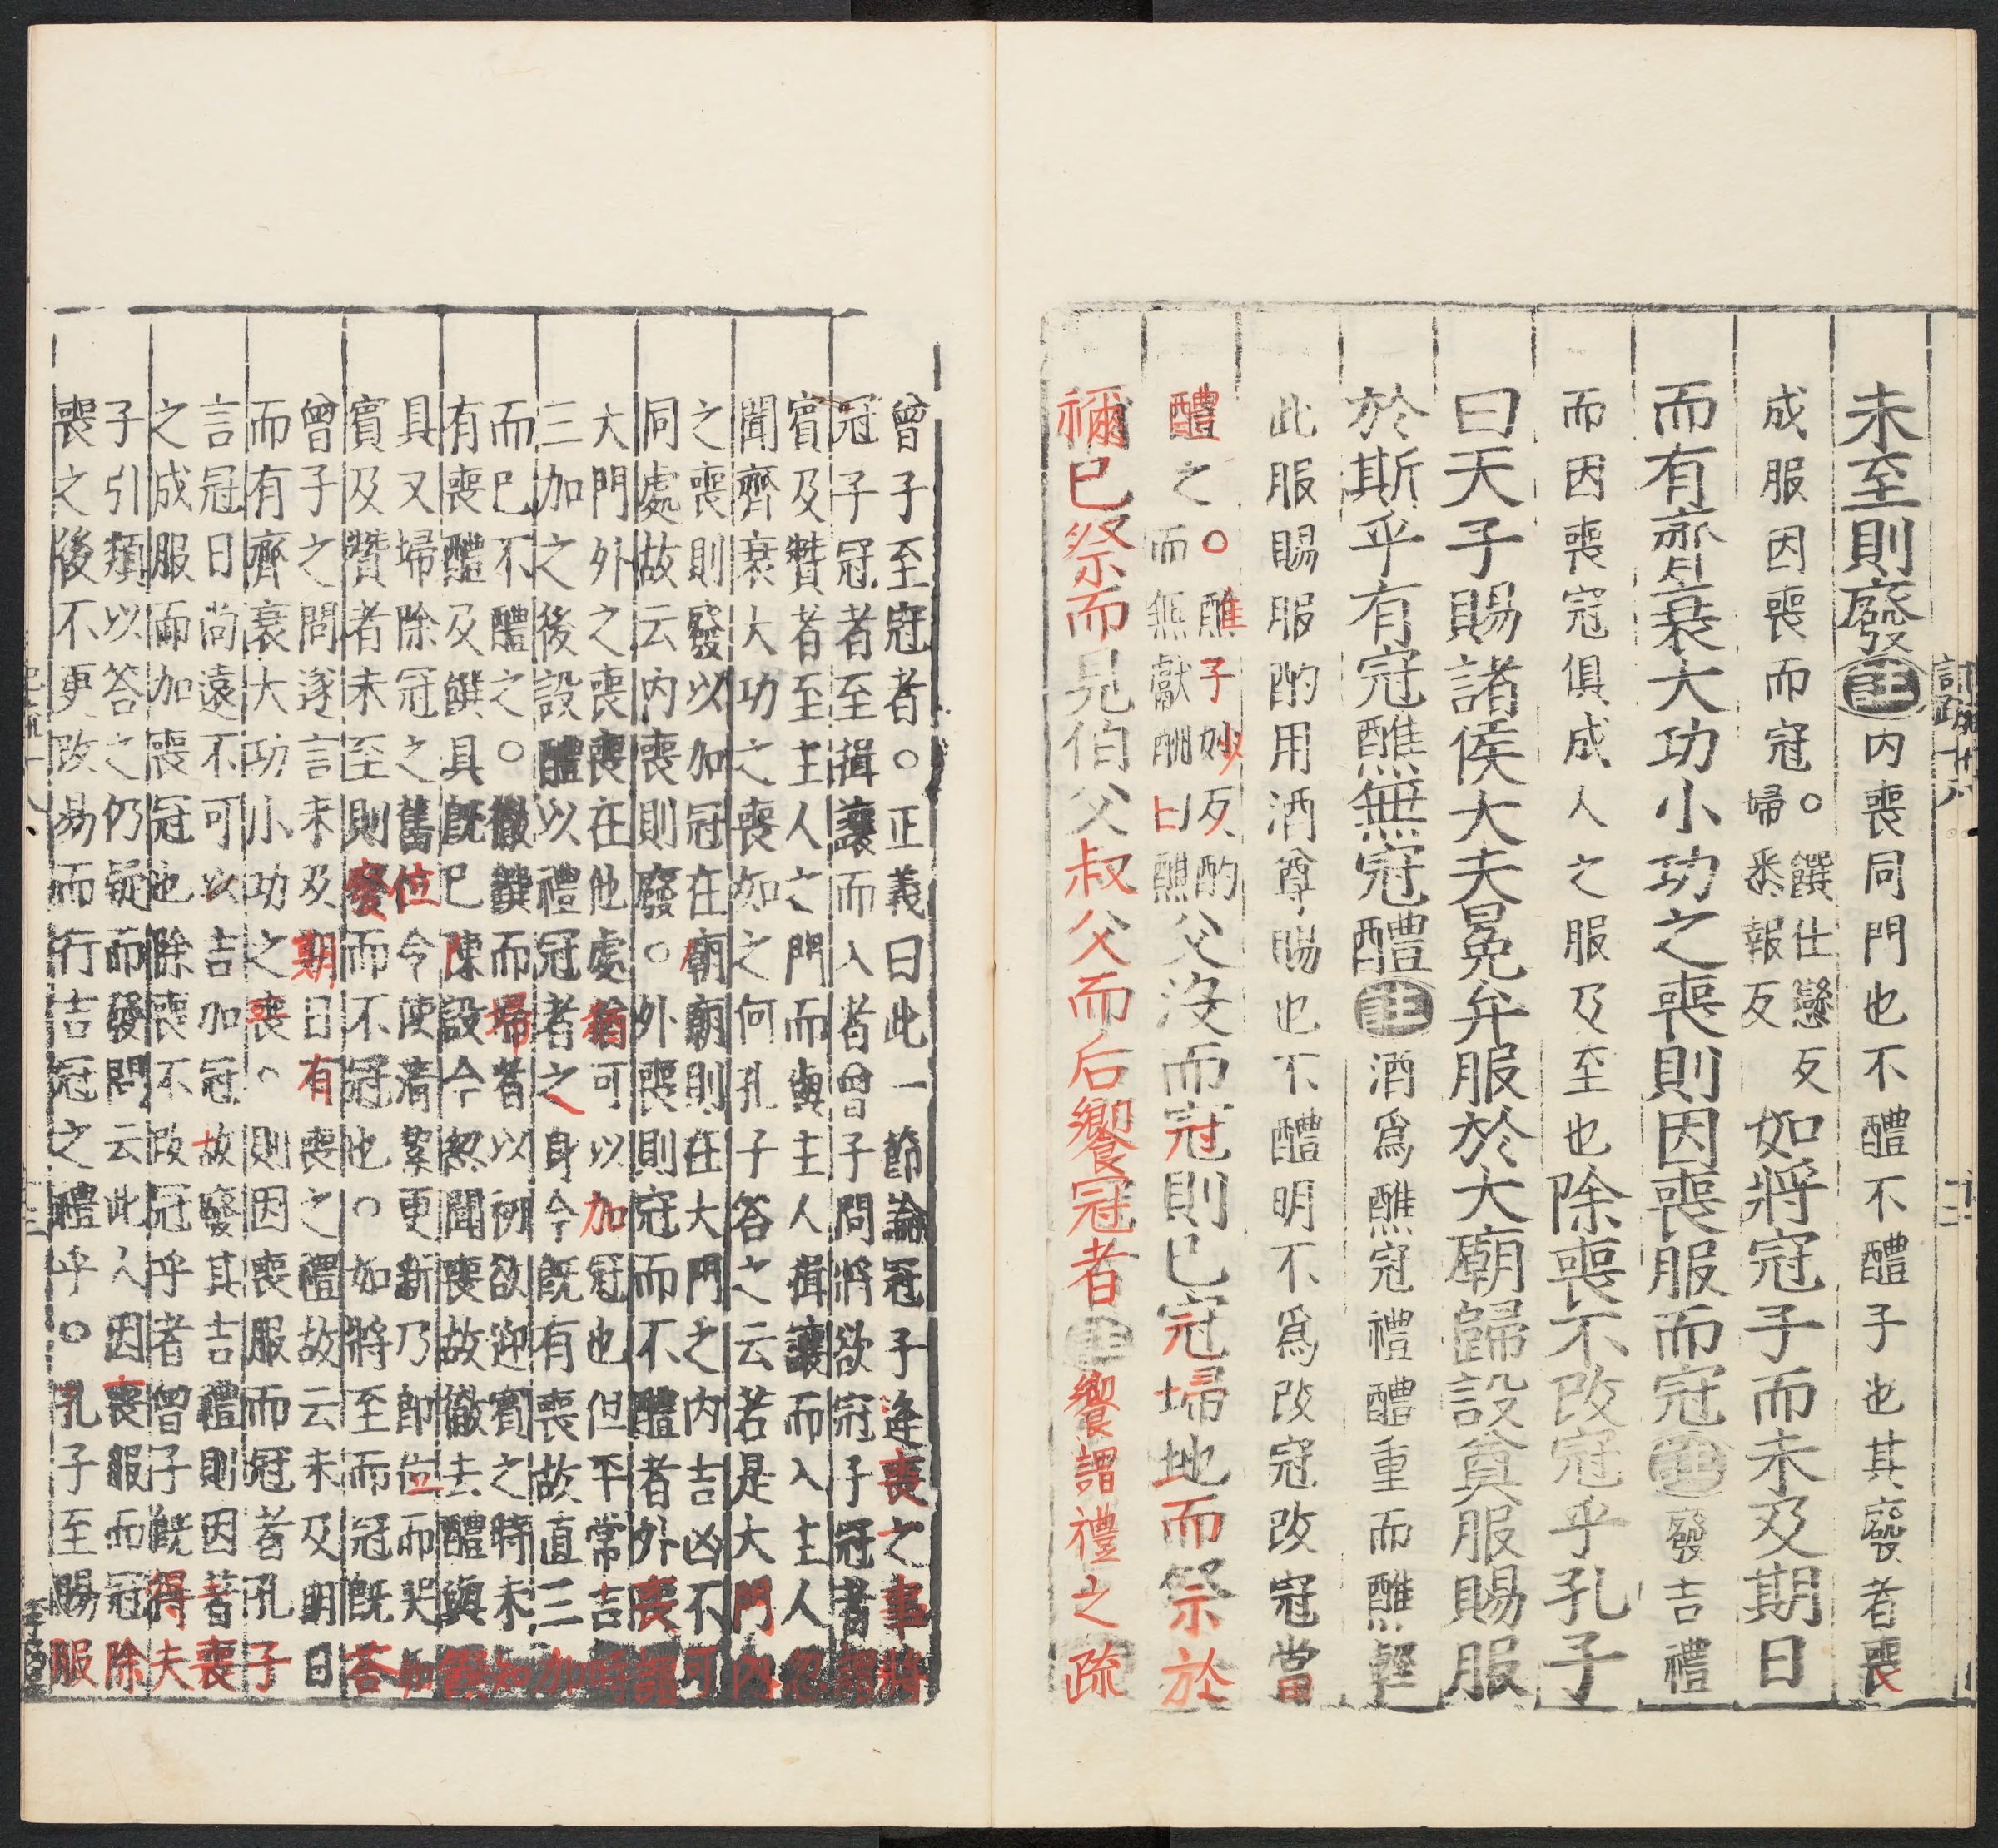 未至則廢註内喪同門也不醴不醴子也其廢者喪
成服因喪而冠。饌仕戀反歸悉報反如將冠子而未及期日
而有齊衰大功小功之喪則因喪服而冠註廢吉禮
而因喪冠俱成人之服及至也除喪不改冠乎孔子
曰天子賜諸侯大夫冕弁服於大廟歸設奠服賜服
於斯乎有冠醮無冠醴註酒爲醮冠禮醴重而醮輕
此服賜服酌用酒尊賜也不醴明不爲改冠改冠當
醴之。醮子妙反酌而無獻酬曰醮父没而冠則已冠埽地而祭於
禰已祭而見伯父叔父而后饗冠者註饗謂禮之疏
曾子至冠者。正義曰此一節論冠子逢喪之事將
冠子冠者至揖讓而入者曾子問將欲冠子冠者謂
賓及贊者至主人之門而與主人揖讓而入主人忽
聞齊衰大功之喪如之何孔子荅之云若是大門内
之喪則廢以加冠在廟廟則在大門之内吉凶不可
同處故云内喪則廢。外喪則冠而不醴者外喪謂
大門外之喪喪在他處猶可以加冠也但平常吉時
三加之後設醴以禮冠者之身今旣有喪故直三加
而已不醴之。徹饌而埽者以初欲迎賓之時未知
有喪醴及饌具旣已陳設今忽聞喪故徹去醴與饌
具又埽除冠之舊位令使清絜更新乃即位而哭如
賓及贊者未至則廢而不冠也。如將至而冠旣荅
曾子之問遂言未及期日有喪之禮故云未及期日
而有齊衰大功小功之喪。則因喪服而冠者孔子
言冠日尚遠不可以吉加冠故廢其吉禮則因著喪
之成服而加喪冠也除喪不改冠乎者曾子旣得夫
子引類以荅之仍疑而發問云此人因喪服而冠除
喪之後不更改易而行吉冠之禮乎。孔子至賜服